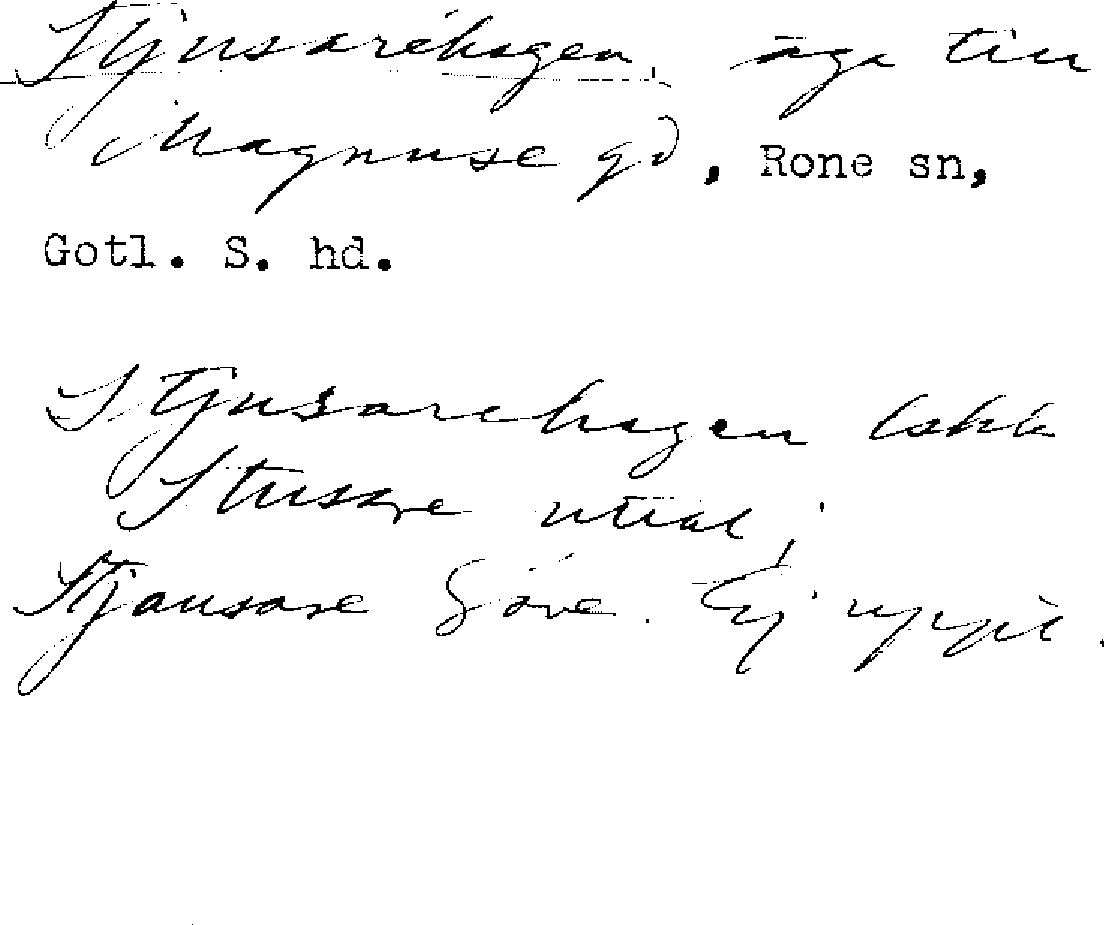 Stjusarehagen, äga till
Magnuse gd, Rone sn,
Gotl. S. hd.
Stjusarehagen Lskk
Stusare uttal;
Stjausare Säve. Ej uppt.